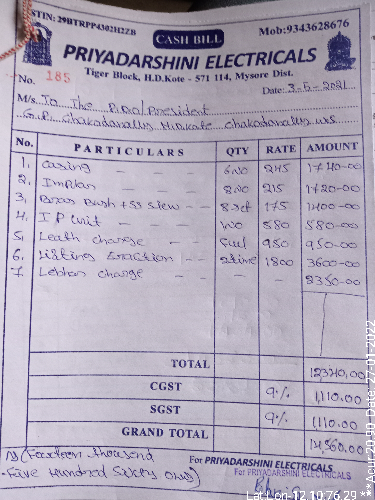 GSTIN: 29BTRPP4302H2ZB
CASH BILL
Mob:9343628676
PRIYADARSHINI ELECTRICALS
Tiger Block, H.D.Kote - 571 114, Mysore Dist.
No. 185
Date: 3-5-2021
M/s To The P.D.O/President
G.P. Chakodanally H.D.Kote
No. PARTICULARS QTY RATE AMOUNT
1. Casing - - - 6 No 245
2. - - - 8 No 215 1720-00
3. Bush + SS - - 8 set 175 1400-00
4. I P Unit - - 580 580-00
5. Leath charge - - 950 950-00
6. Lifting - - 1800 3600-00
7. charge - - - 8350-00
TOTAL 12320.00
CGST 9% 1,110.00
SGST 9% 1,110.00
GRAND TOTAL 14,560.00
(Forteen thousand
Five Hundred Sixty only)
For PRIYADARSHINI ELECTRICALS
For PRIYADARSHINI ELECTRICALS
Lat Lon-12 10,76.29 ***Acur-20.90 Date: 27-01-2022